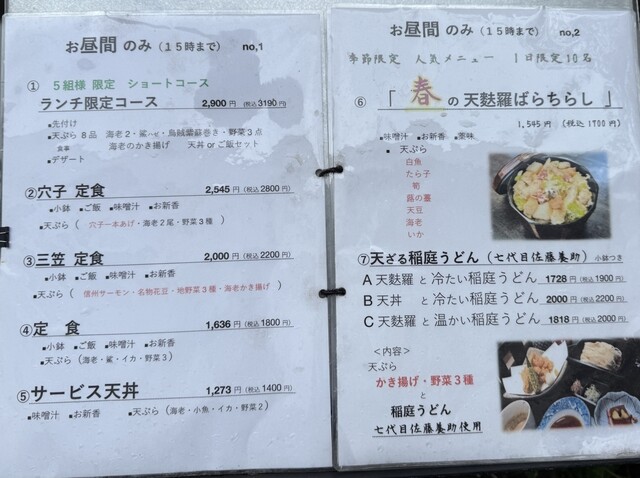 お昼間 のみ（１５時まで） no,1
① ５組様 限定 ショートコース
ランチ限定コース 2,900円（税込3190円）
■先付け
■天ぷら８品 海老２・鯊ハゼ・烏賊紫蘇巻き・野菜３点
食事 海老のかき揚げ 天丼 or ご飯セット
■デザート
②穴子 定食 2,545円（税込2800円）
■小鉢 ■ご飯 ■味噌汁 ■お新香
■天ぷら（ 穴子一本あげ・海老２尾・野菜３種 ）
③三笠 定食 2,000円（税込2200円）
■小鉢 ■ご飯 ■味噌汁 ■お新香
■天ぷら（ 信州サーモン・名物花豆・地野菜３種・海老かき揚げ ）
④定 食 1,636円（税込1800円）
■小鉢 ■ご飯 ■味噌汁 ■お新香
■天ぷら（海老・鯊・イカ・野菜３）
⑤サービス天丼 1,273円（税込1400円）
■味噌汁 ■お新香 ■天ぷら（海老・小魚・イカ・野菜２）
お昼間 のみ（１５時まで） no,2
季節限定 人気メニュー １日限定１０名
⑥ 「 春の天麩羅ばらちらし 」
1,545円 （税込1700円）
■味噌汁 ■お新香 ■薬味
■天ぷら
白魚
たら子
筍
蕗の薹
天豆
海老
いか
⑦天ざる稲庭うどん（七代目佐藤養助）小鉢つき
A 天麩羅 と 冷たい稲庭うどん 1728円（税込1900円）
B 天丼 と 冷たい稲庭うどん 2000円（税込2200円）
C 天麩羅 と 温かい稲庭うどん 1818円（税込2000円）
＜内容＞
天ぷら
かき揚げ・野菜３種
と
稲庭うどん
七代目佐藤養助使用